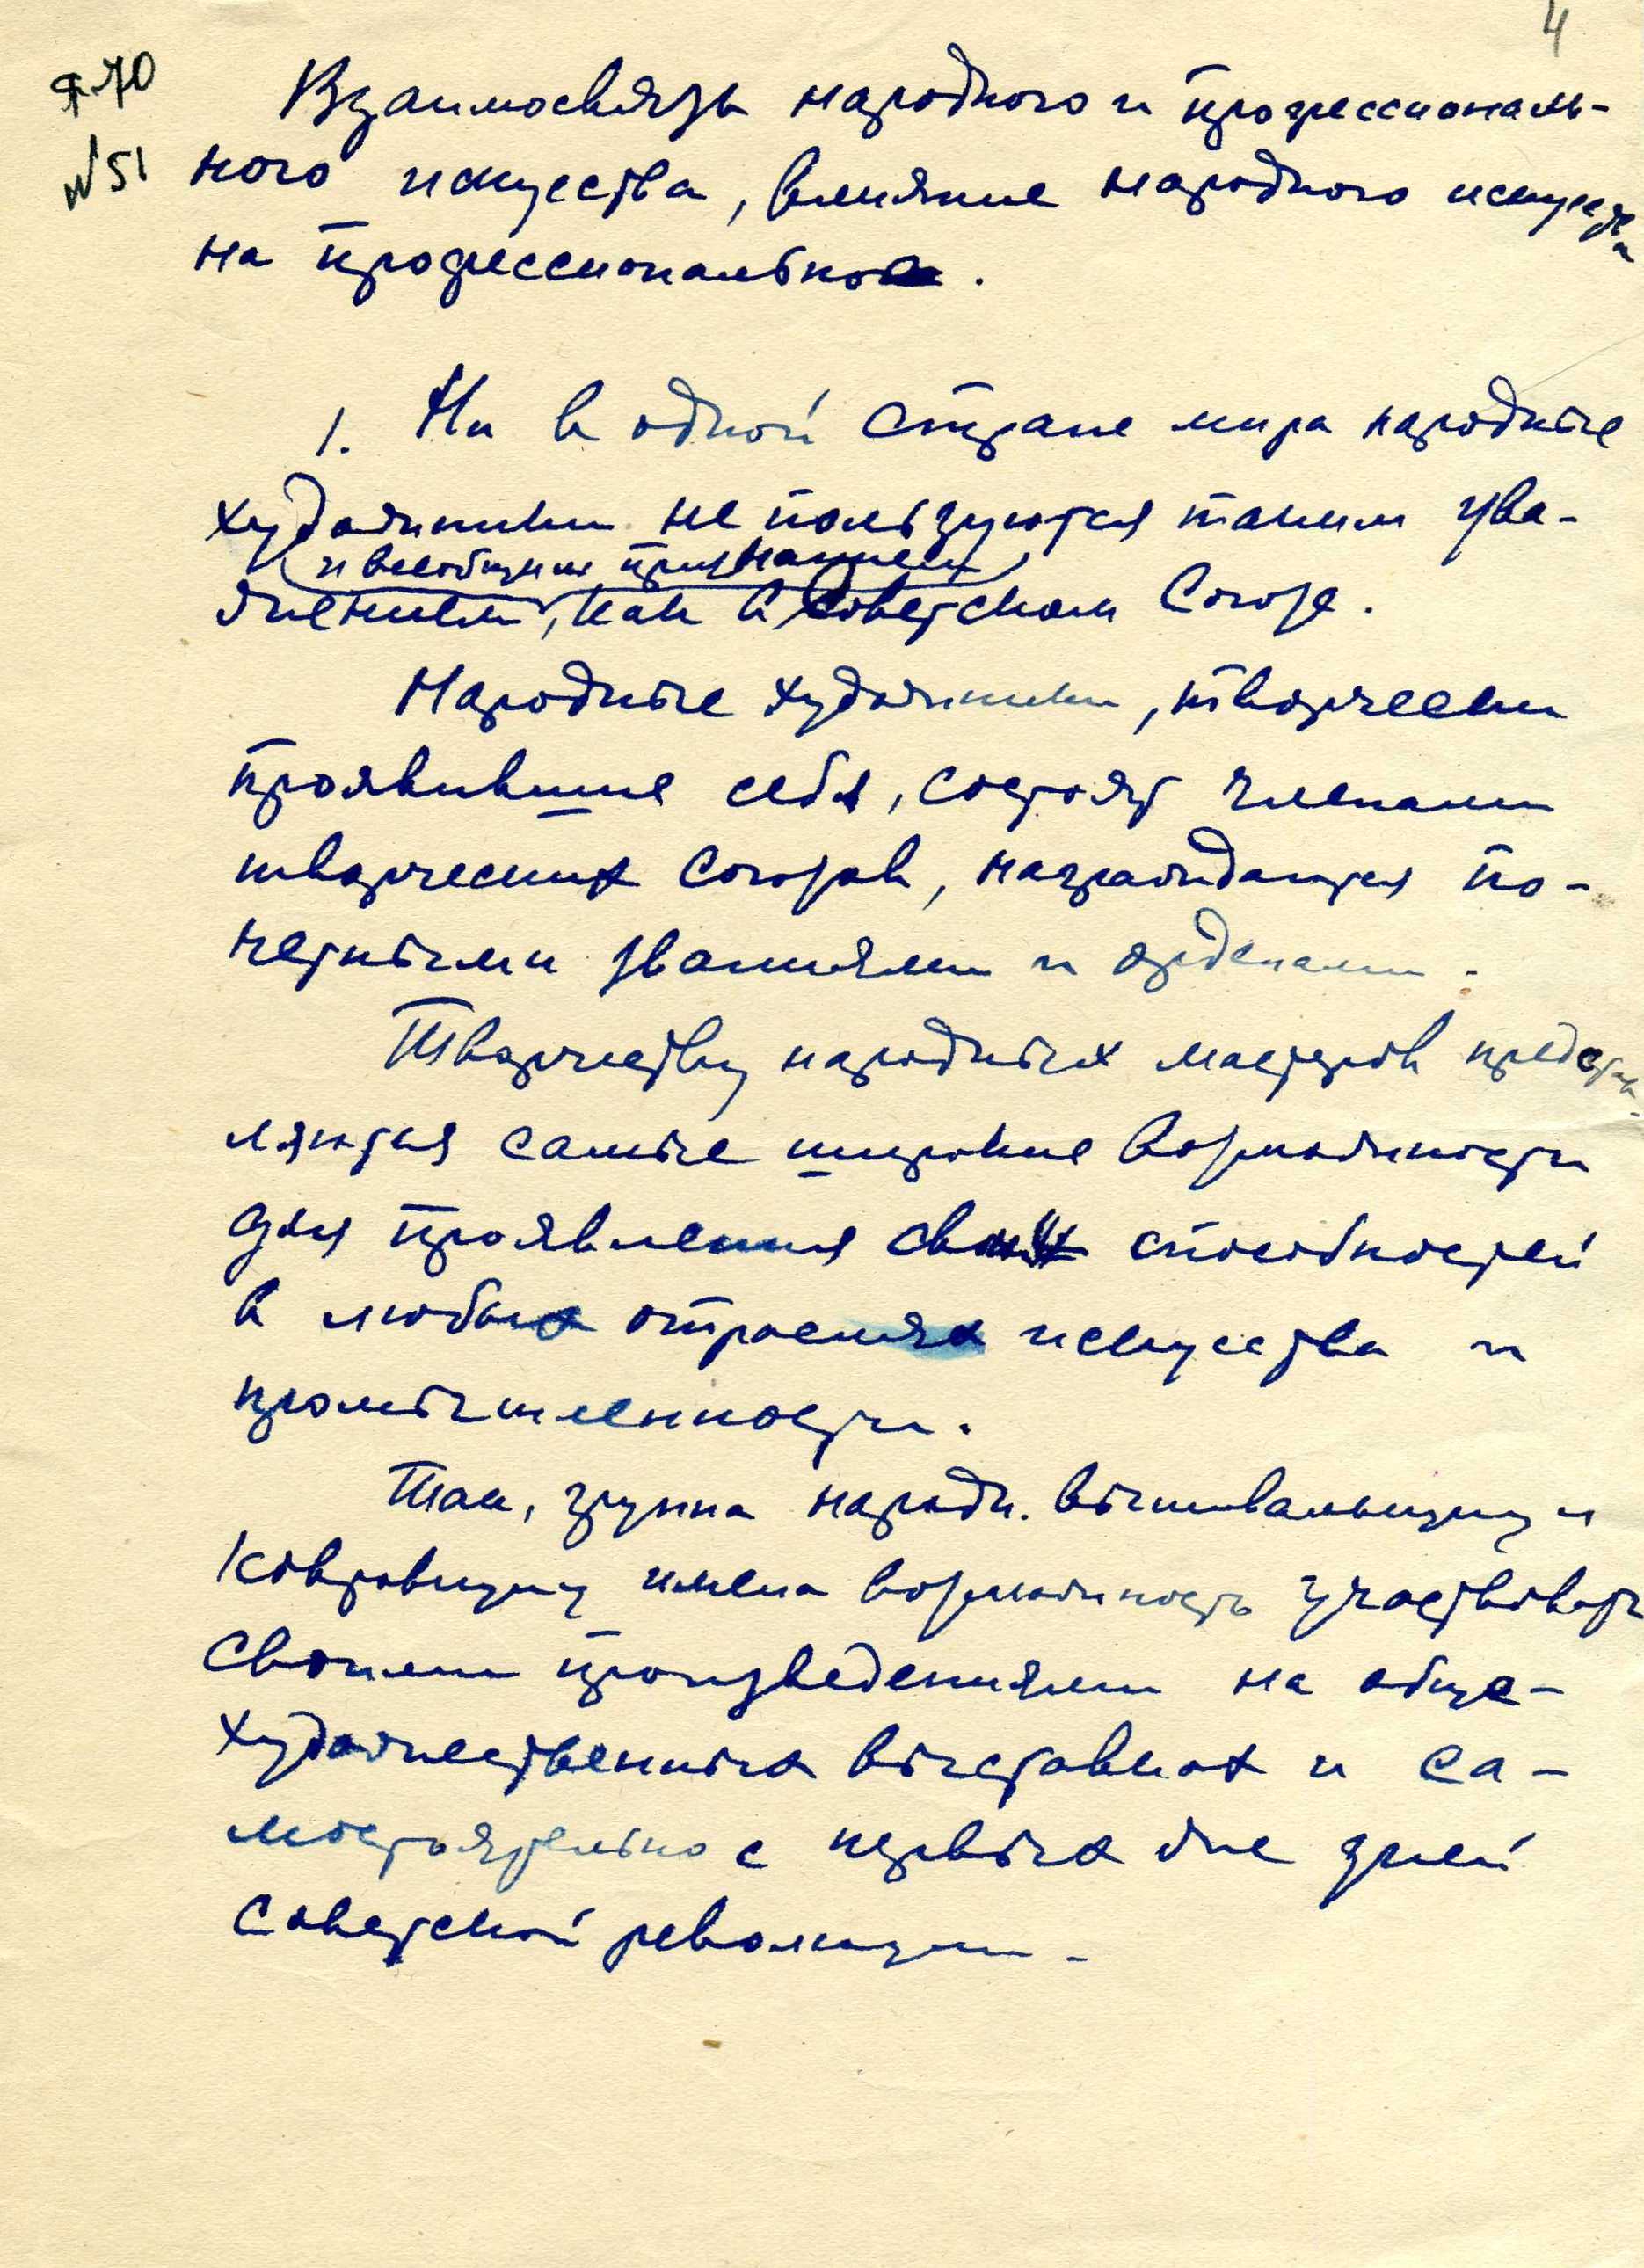 4
Я-70
№51
Взаимосвязь народного и профессиональ-
ного искусства, влияние народного искусства
на профессиональное.
1. Ни в одной стране мира народные
художники не пользуются таким ува-
и всеобщим признанием
жением, как в Советском Союзе.
Народные художники, творчески
проявившие себя, состоят членами
творческих союзов, награждаются по-
четными званиями и орденами.
Творчеству народных мастеров представ-
ляются самые широкие возможности
для проявления своих способностей
в любых отраслях искусства и
промышленности.
Так, группа народн. вышивальщиц и
ковровщиц имела возможность участвовать
своими произведениями на обще-
художественных выставках и са-
мостоятельно с первых же дней
советской революции.